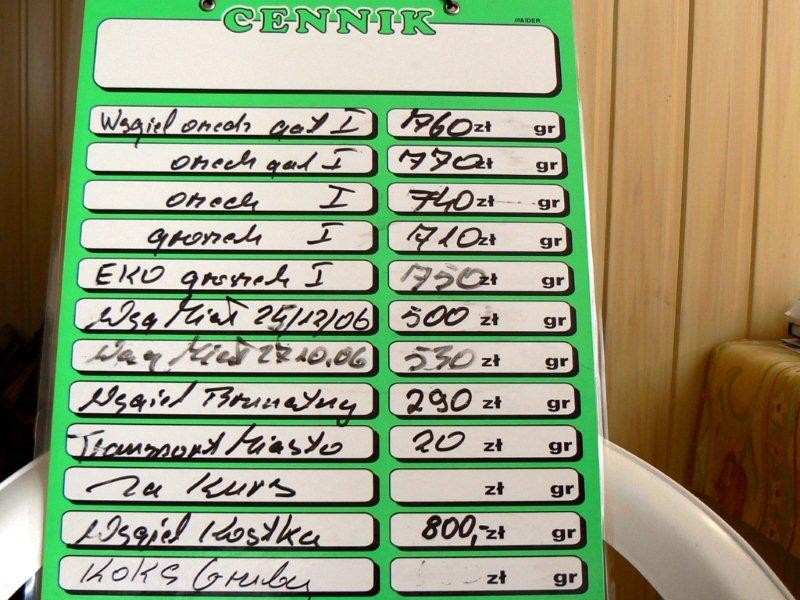 CENNIK
MAIDER
Węgiel orzech gat I 760 zł gr
orzech gat I 770 zł gr
orzech I 740 zł gr
groszek I 710 zł gr
EKO groszek I 750 zł gr
Węg Miał 25/12/06 500 zł gr
Węg Miał 27.10.06 530 zł gr
Węgiel Brunatny 290 zł gr
Transport Miasto 20 zł gr
za kurs zł gr
Węgiel Kostka 800,- zł gr
KOKS Gruby zł gr